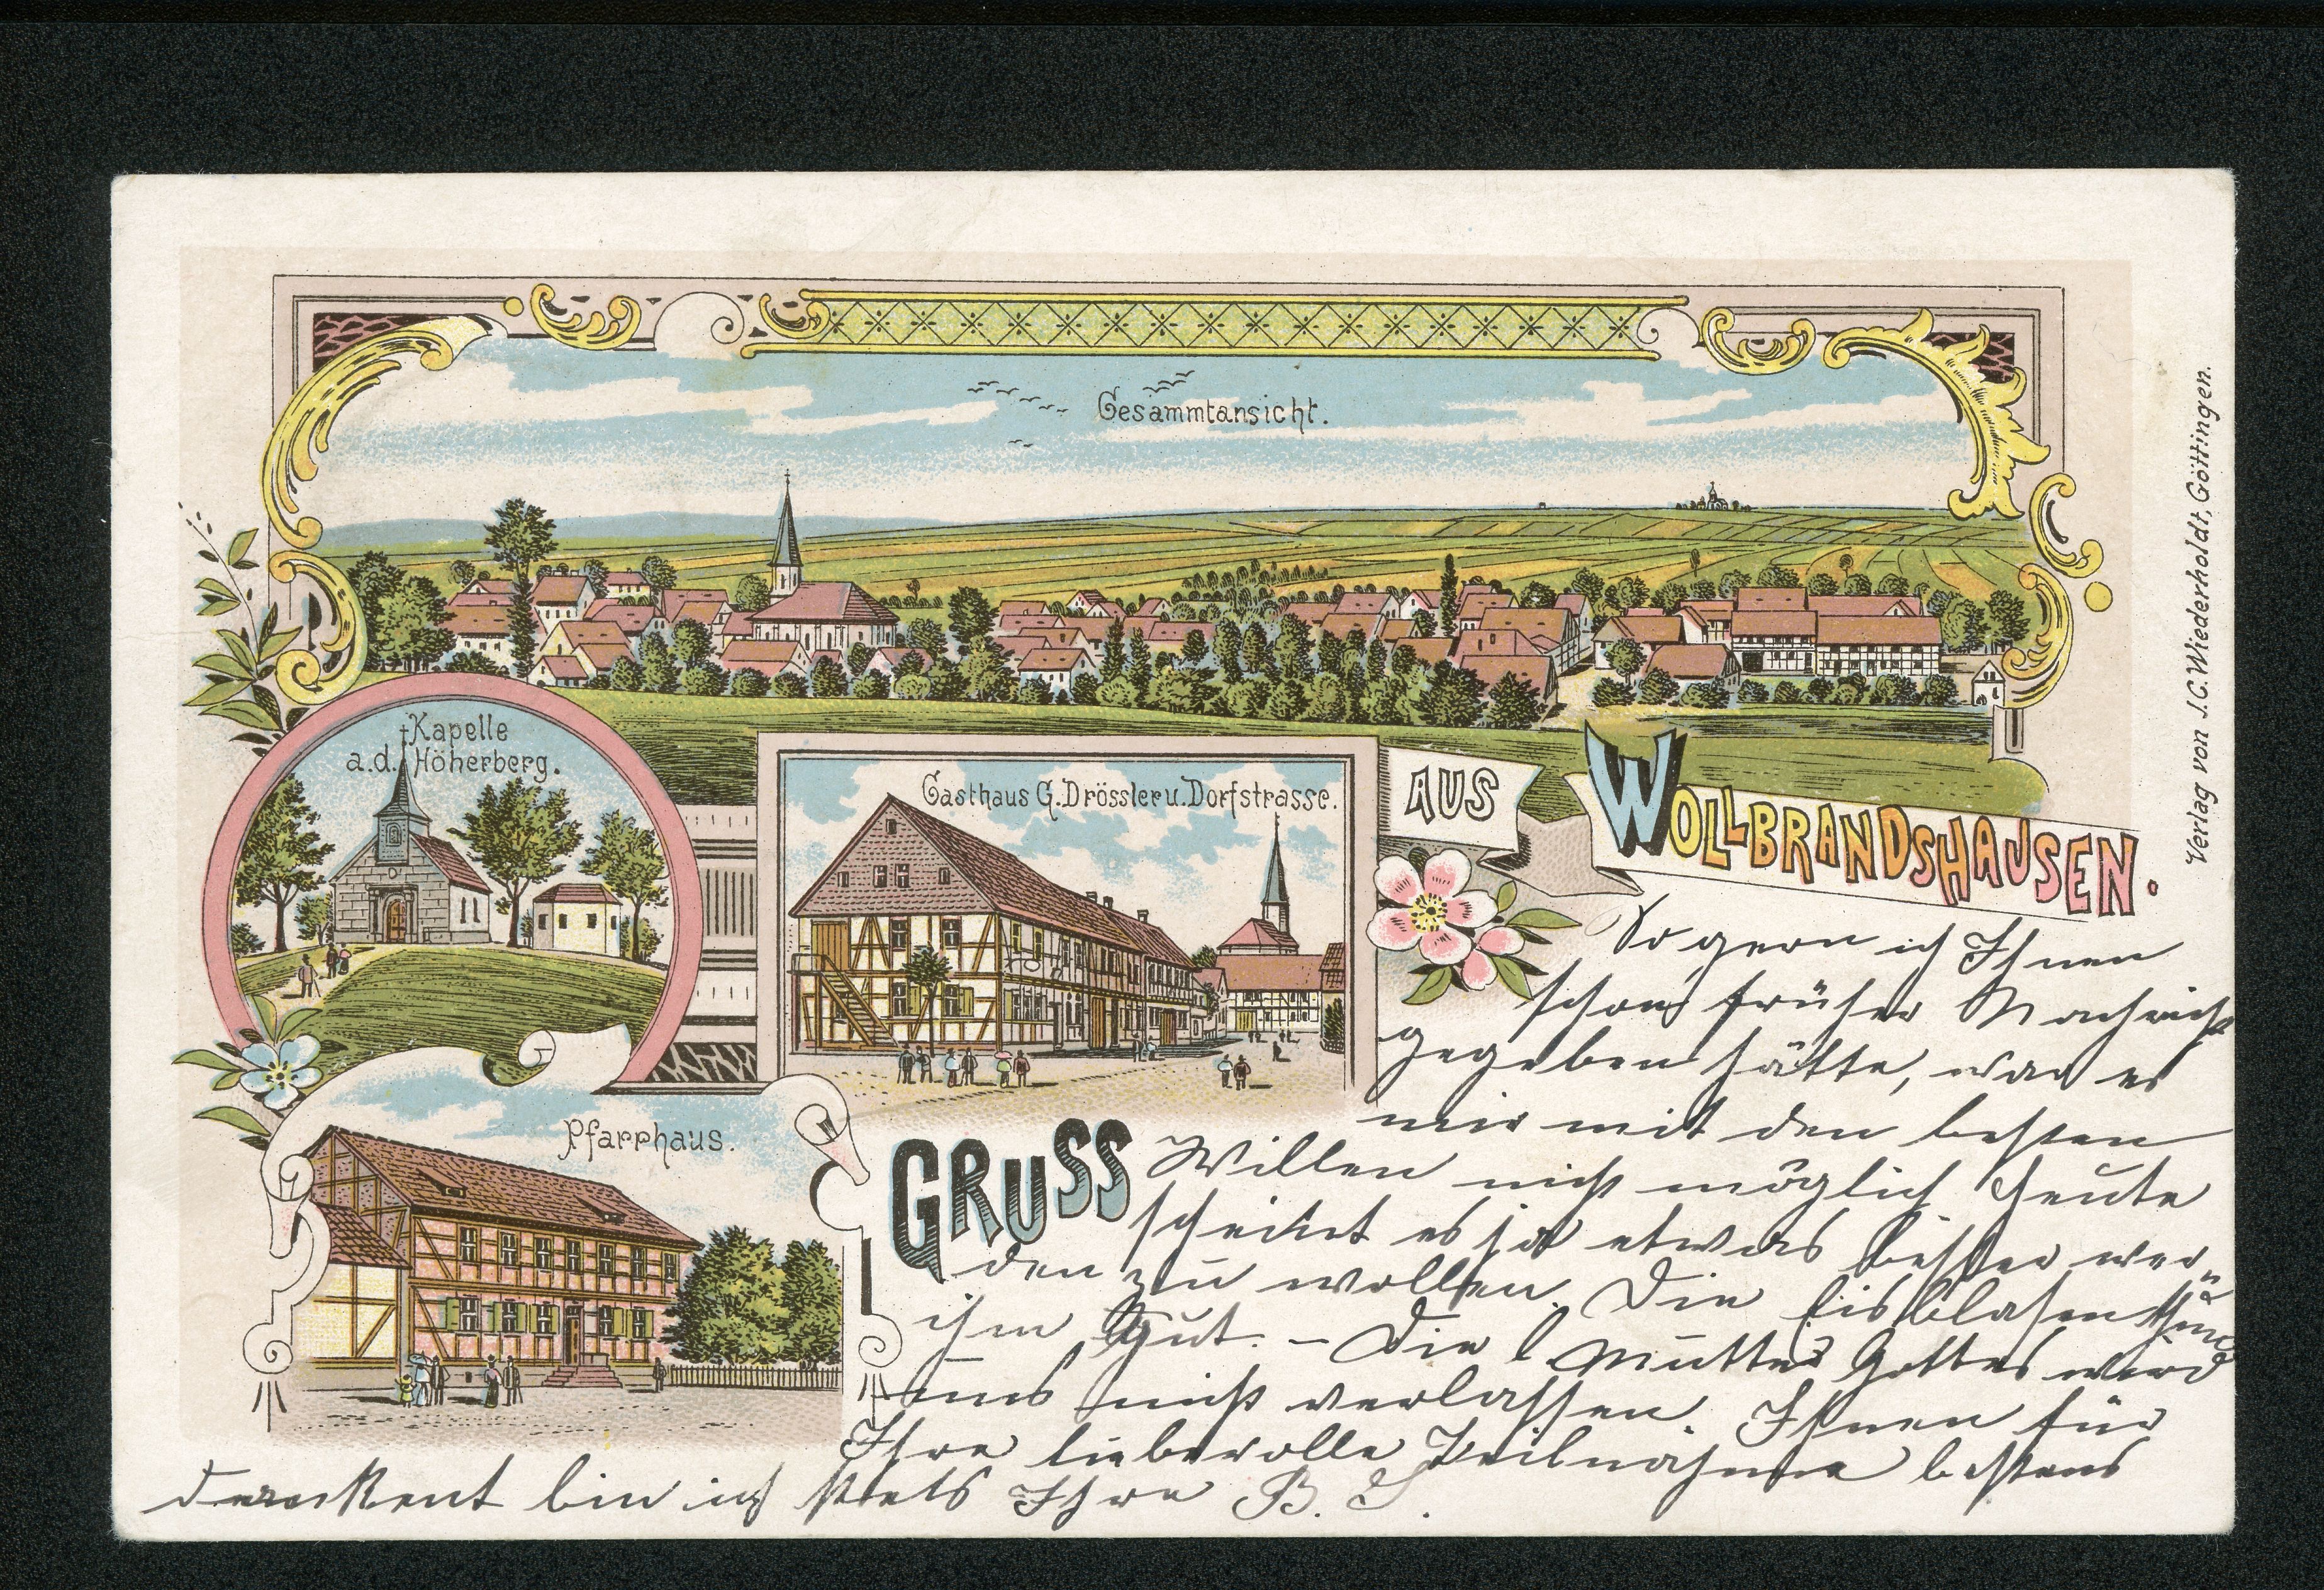 Gesammtansicht.
Kapelle
a.d. Höherberg.
Gasthaus G. Drössler u. Dorfstrasse.
Pfarrhaus.
GRUSS
AUS
WOLLBRANDSHAUSEN.
Verlag von J. C. Wiederholdt, Göttingen.
So gern ich Ihnen
schon früher Nachricht
gegeben hätte, war es
mir mit den besten
Willen nicht möglich heute
scheint es ja etwas besser wer-
den zu wollen. Die Eisblasen thun
ihm gut. – Die l. Mutter Gottes wird
uns nicht verlassen. Ihnen für
Ihre liebevolle Teilnahme bestens
dankent bin ich stets Ihre B. S.